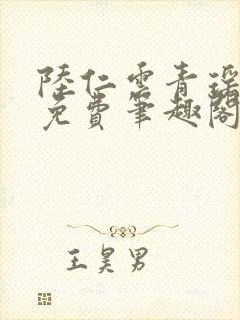 陸仁雲青瑶
免費筆趣閣
王昊男